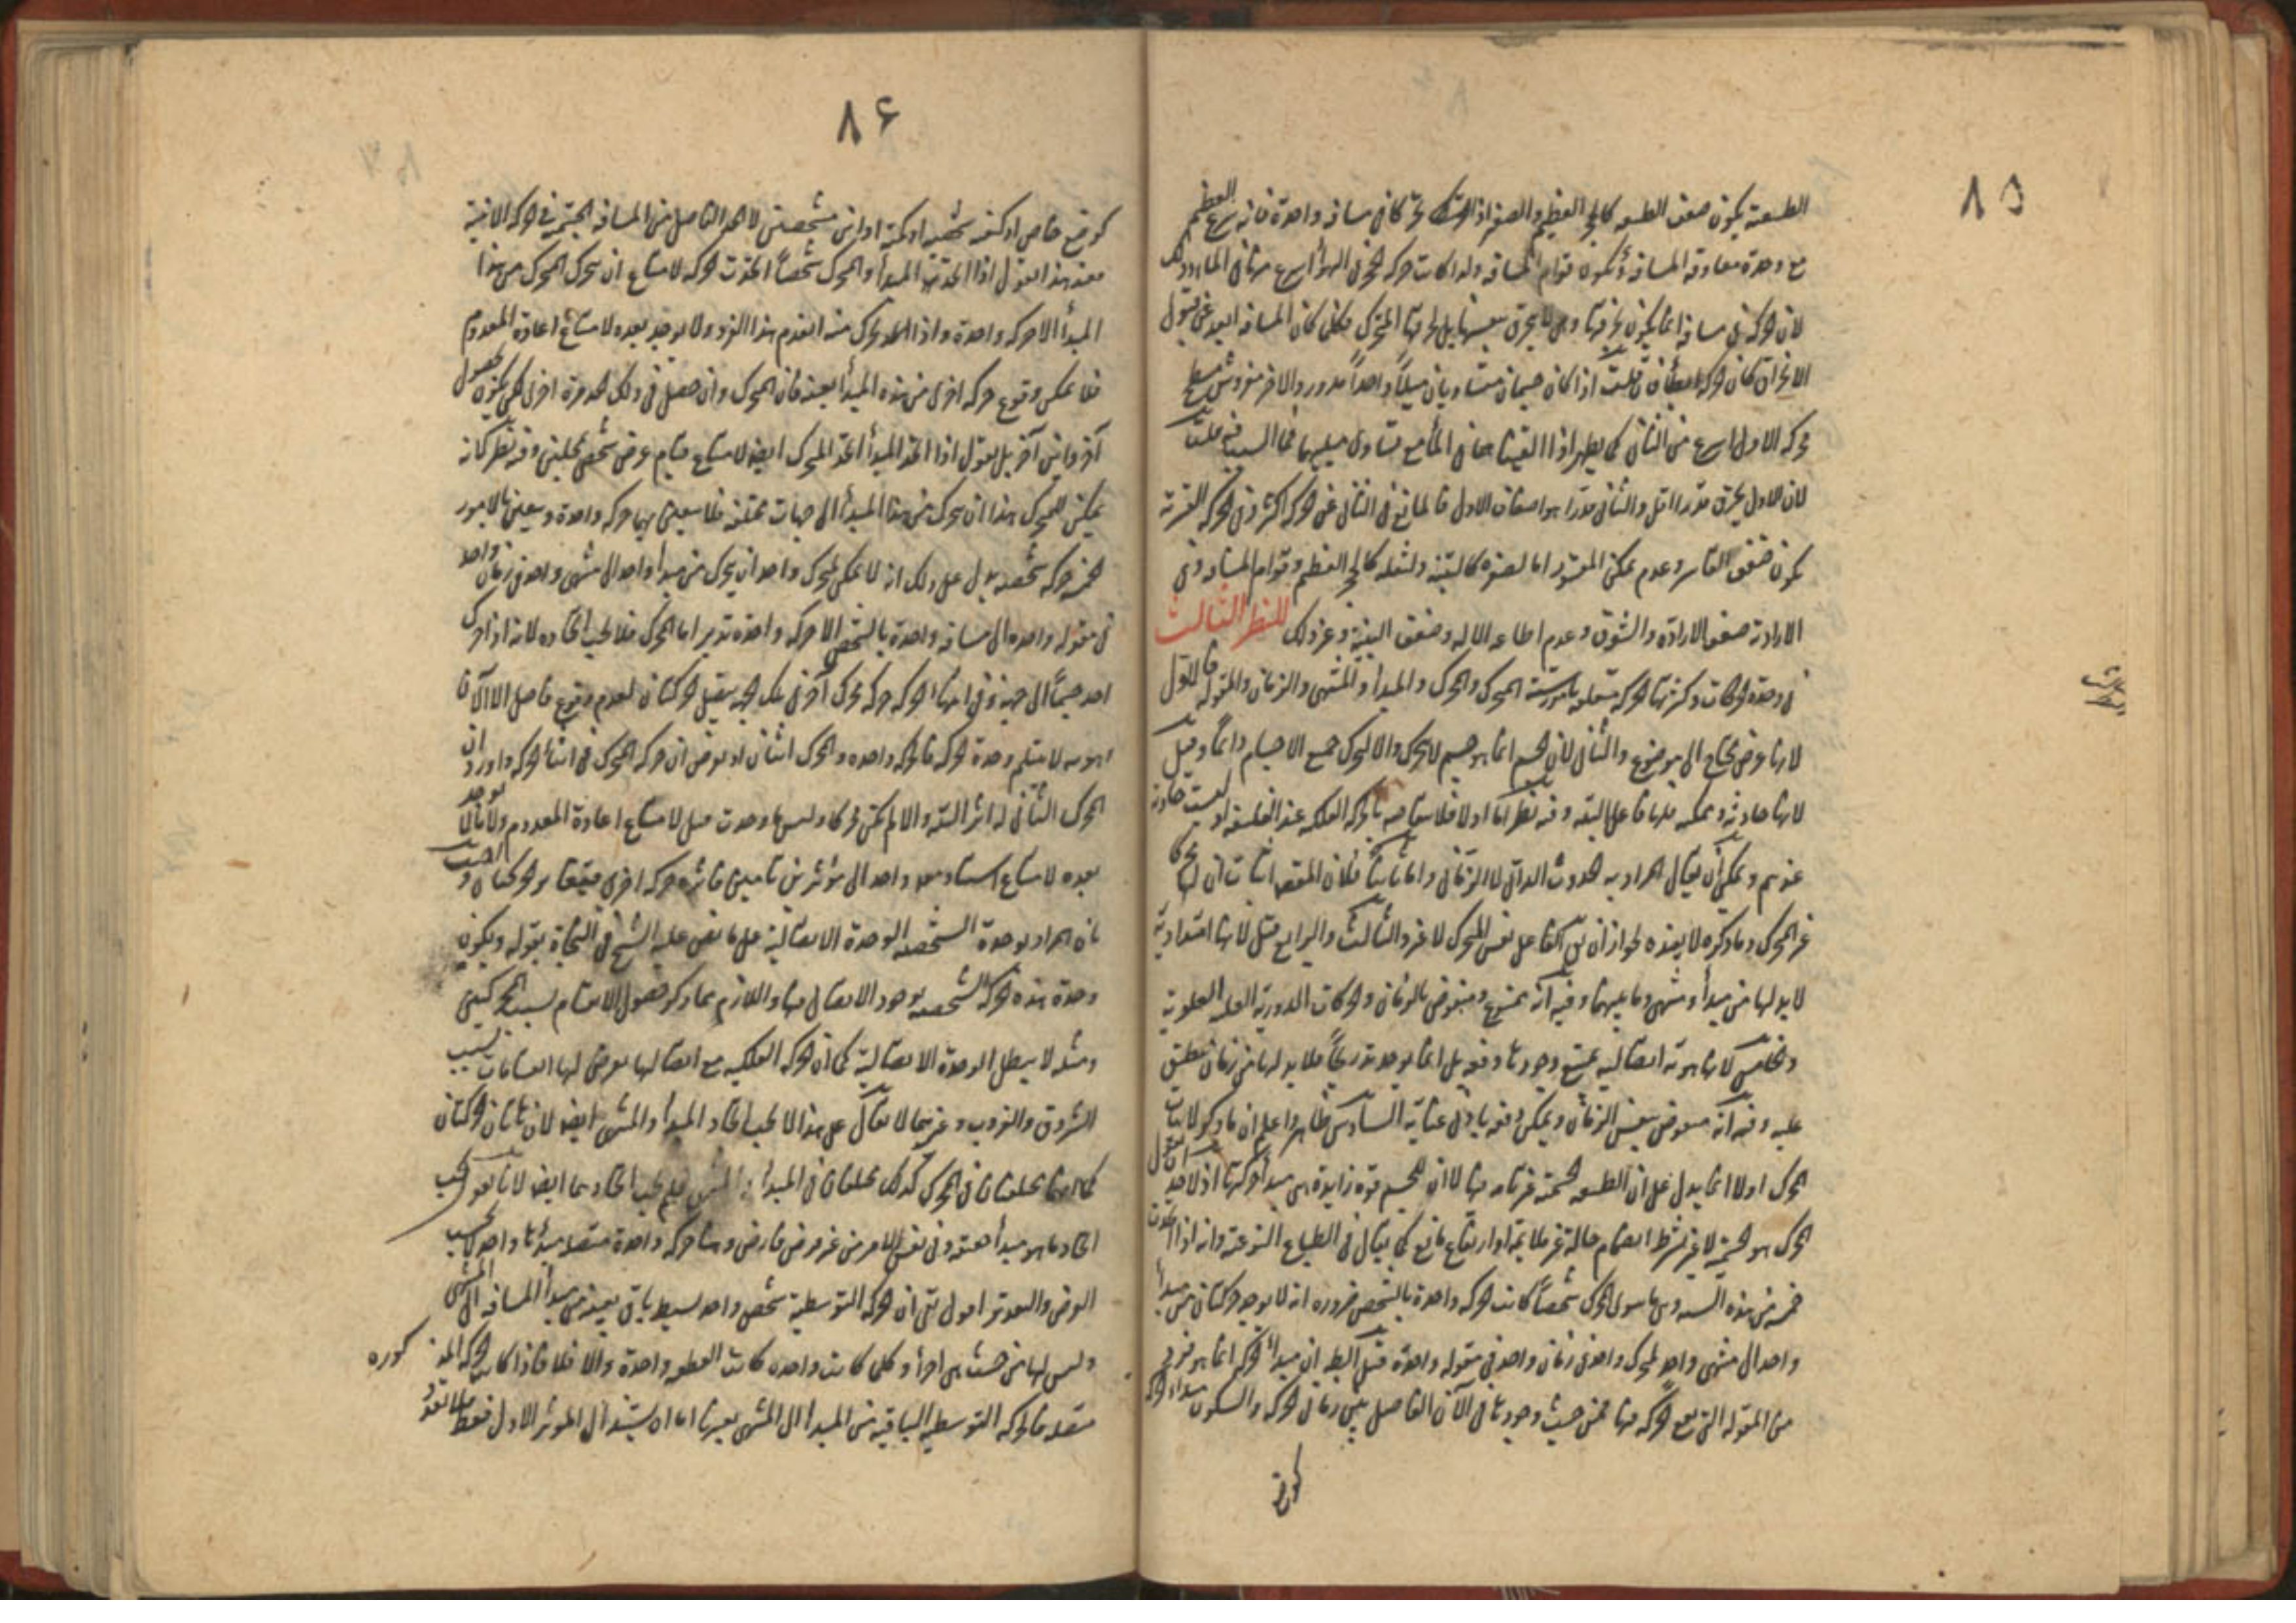 ٨٥
الطبيعية يكون ضعف الطبيعة كالحجر العظيم والصغير اذا تحركا في مسافة واحدة فانه يسرع العظيم
مع وحدة معاوقة المسافة وتكون قوام المسافة ولذا كانت حركة الحجر في الهواء اسرع منها في الماء وذلك
لان الحركة في مسافة انما يكون بخرقها وهي لا ينخرق بنفسها بل يخرقها المتحرك فكل كان المسافة ابعد عن قبول
الانخراق كان الحركة ابطأ فان قلت اذا كان جسمان متساويان ميلاً واحداً مدور والاخر مفروش مسطح
حركة الاول اسرع من الثاني كما يظهر اذا القيتهما في الماء مع تساوي ميليهما فما السبب فيه قلت
لان الاول يخرق قدرا اقل والثاني قدرا هو اضعاف الاول فالمانع في الثاني عن الحركة اكثر وفي الحركة القسرية
يكون ضعف القاسر وعدم تمكن المقسور اما لصغره كالتبنة ولثقله كالحجر العظيم وقوام المسافة وفي
الارادية ضعف الارادة والشوق وعدم اطاعة الالة وضعف البنية وغير ذلك النظر الثالث
في وحدة الحركات وكثرتها الحركة متعلقة بامور ستة المتحرك والمحرك والمبدأ والمنتهى والزمان والمقولة فالاول
لانها عرض يحتاج الى موضوع والثاني لان الجسم انما هو جسم لا يتحرك والا لتحرك جميع الاجسام دائماً وقيل
لانها حادثة وممكنة فلها فاعل البتة وفيه نظر اما اولا فلانتقاضه بالحركة الفلكية عند الفلاسفة اذ ليست حادثة
عندهم ويمكن أن يقال المراد به الحدوث الذاتي لا الزماني واما ثانياً فلان المقصود اثبات ان لها محركا
غير المتحرك وما ذكره لا يفيده لجواز أن يكون الفاعل نفس المتحرك لا غير والثالث والرابع قيل لانها امتدادية
لا بد لها من مبدأ ومنتهى وما بينهما وفيه انه ممنوع ومنقوض بالزمان والحركات الدورية
والخامس لانها هوية اتصالية يمتنع وجودها دفعة بل انما يوجد تدريجاً فلا بد لها من زمان ينطبق
عليه وفيه انه منقوض بنفس الزمان ويمكن دفعه بادنى عناية السادس ظاهر واعلم ان ما ذكر لاثبات
المحرك اولا انما يدل على ان الطبيعة الجسمية غير كافية لا ان للجسم قوة زايدة هي مبدأ حركتها اذ لاحد ان يقول
المحرك هو الجسمية لا غير بشرط انضمام حالة غير ملايمة او ارتفاع مانع كما يقال في الطبايع النوعية وانه اذا اتحدت
خمسة من هذه الستة وهي ما سوى المحرك شخصاً كانت الحركة واحدة بالشخص ضرورة انه لا يوجد حركتان من مبدأ
واحد الى منتهى واحد لمتحرك واحد في زمان واحد في مقولة واحدة
من المقولة التي تقع الحركة فيها فمن حيث وجودها في الآن الفاصل بين زماني الحركة والسكون مبدأ الحركة
كوضع
٨۶
كوضع خاص او كيفية شخصية او كمية او اين مشخصين لا الحد الفاصل من المسافة
فعند هذا نقول اذا اتحدت المبدأ والمتحرك شخصاً اتحدت الحركة لامتناع ان يتحرك المتحرك من هذا
المبدأ الا حركة واحدة واذا تحرك منه انعدم هذا الفرد ولا يوجد بعده لامتناع اعادة المعدوم
فلا يمكن وقوع حركة اخرى من هذه المبدأ بعينه فان المتحرك وان حصل في ذلك الحد مرة اخرى لكن يكون بحصول
آخر واين آخر بل نقول اذا اتحد المبدأ اتحد المتحرك ايضا لامتناع قيام عرض شخصي بمحلين وفيه نظر كانه
يمكن للمتحرك هذا ان يتحرك من هذا المبدأ الى جهات مختلفة فلا يتعين بها حركة واحدة ويتعين بالامور
الخمسة حركة شخصية يدل على ذلك انه لا يمكن لمتحرك واحد ان يتحرك من مبدأ واحد الى منتهى واحد في زمان واحد
في مقولة واحدة الى مسافة واحدة بالشخص الا حركة واحدة تدبر اما المحرك فلا يجب اتحاده لانه اذا حرك
احد جسماً الى جهة وفي اثناء الحركة حركه محرك آخر في تلك الجهة لعدم وقوع فاصل الا الآن
لا ينثلم وحدة الحركة فالحركة واحدة والمحرك اثنان
المحرك الثاني له اثر البتة والا لم يكن محركا وليس ما وجدت قبل لامتناع اعادة المعدوم ولا ما يوجد
بعده لامتناع استناد معلول واحد الى مؤثرين تامين فتأثيره حركة اخرى فتحققها حركتان واجيب
بان المراد بوحدة الشخصية الوحدة الاتصالية على ما نص عليه الشيخ في النجاة بقوله ويكون
وحدة هذه الحركة الشخصية بوجود الاتصال فيها واللازم مما ذكر حصول الانقسام بسبب المحركين
ومثله لا يبطل الوحدة الاتصالية كما ان الحركة الفلكية مع اتصالها يعرض لها انقسامات بسبب
الشروق والغروب وغيرهما لا يقال على هذا لا يجب اتحاد المبدأ والمنتهى ايضا لان هاتان الحركتان
كما انهما مختلفتان في المحرك كذلك مختلفتان في المبدأ والمنتهى فلم يجب اتحادهما ايضا لانا نقول يجب
اتحاد ما هو مبدأ حقيقة وفي نفس الامر من غير فرض فارض وهنا حركة واحدة متصلة مبدأها واحد بحسب
الفرض والتعدد اقول بقي ان الحركة التوسطية شخص واحد بسيط باق بعينه من مبدأ المسافة الى المنتهى
وليس لها من حيث هي اجزاء وكل كانت واحدة كانت القطعية واحدة والا فلا فاذا كانت الحركة المذكورة
متصلة فالحركة التوسطية الباقية من المبدأ الى المنتهى بعينها اما ان يستند الى المؤثر الاول فقط